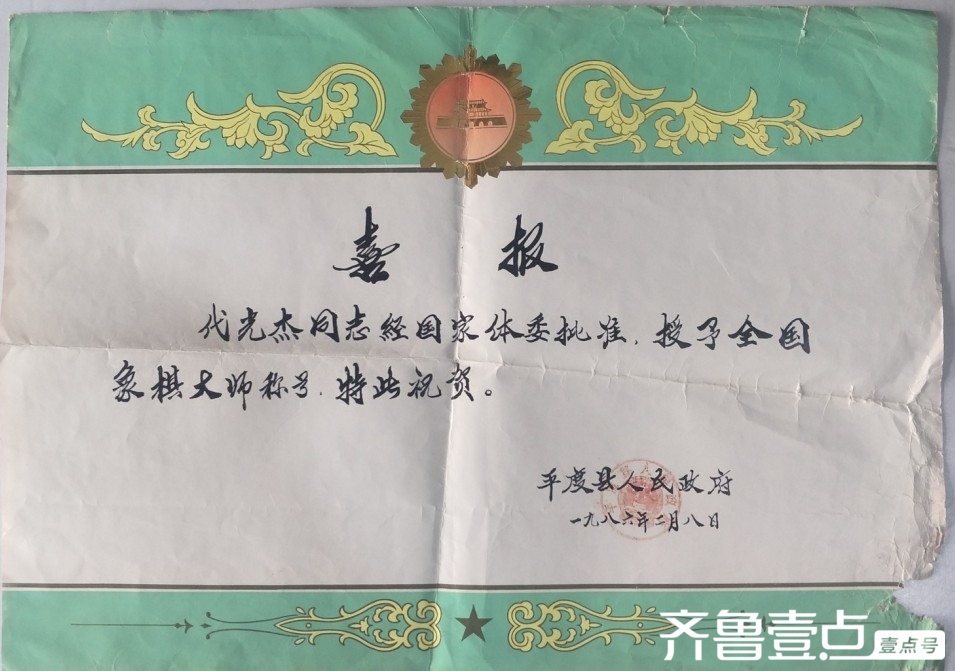 喜报
代光杰同志经国家体委批准，授予全国
象棋大师称号，特此祝贺。
平度县人民政府
一九八六年二月八日
齐鲁壹点
壹点号